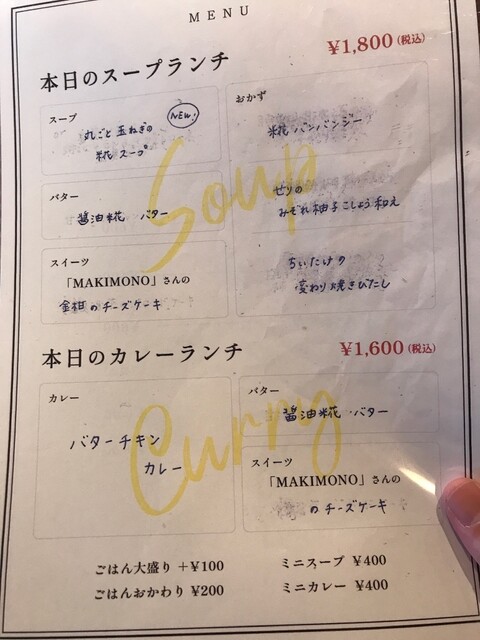 MENU
本日のスープランチ
¥1,800(税込)
スープ
NEW!
丸ごと玉ねぎの
糀スープ
バター
醤油糀 バター
スイーツ
「MAKIMONO」さんの
金柑のチーズケーキ
おかず
糀バンバンジー
せりの
みぞれ柚子こしょう和え
ちぃたけの
変わり焼きびたし
Soup
本日のカレーランチ
¥1,600(税込)
カレー
バターチキン
カレー
バター
醤油糀・バター
スイーツ
「MAKIMONO」さんの
のチーズケーキ
Curry
ごはん大盛り +¥100
ごはんおかわり ¥200
ミニスープ ¥400
ミニカレー ¥400